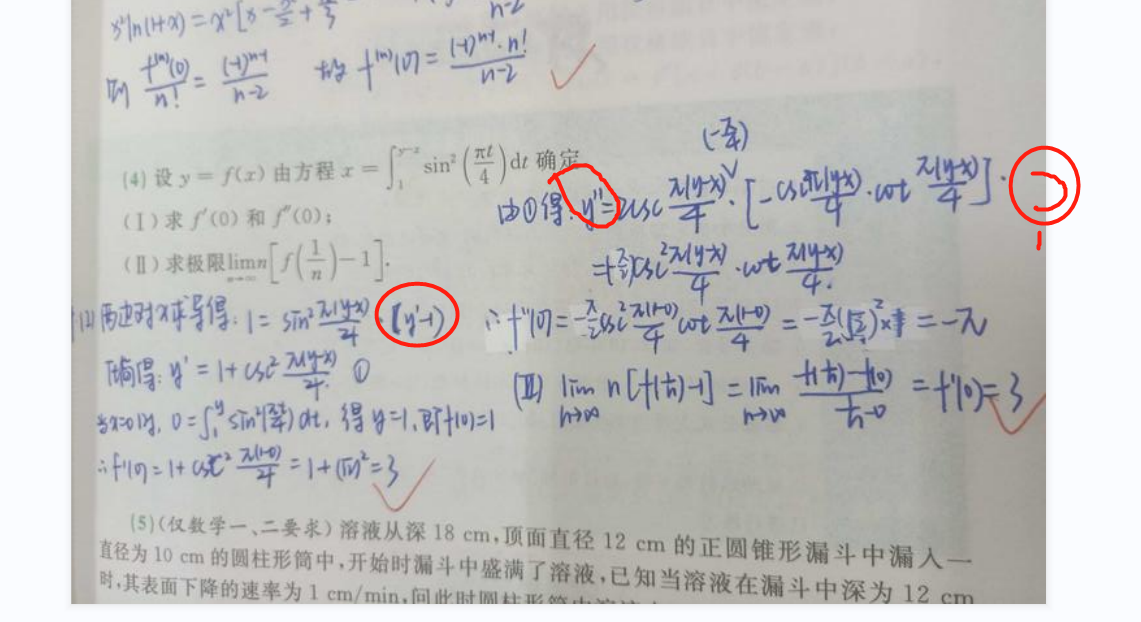 x²ln(1+x)=x²[x-x²/2+x³/3
n-2
则 f⁽ⁿ⁾(0)/n! = (-1)ⁿ⁻¹/(n-2) 故 f⁽ⁿ⁾(0)= (-1)ⁿ⁻¹·n!/(n-2)
(4) 设 y = f(x) 由方程 x = ∫₁^(y-x) sin²(πt/4)dt 确定
(Ⅰ)求 f′(0) 和 f″(0);
(Ⅱ)求极限 lim n→∞ n[f(1/n)-1].
两边对x求导得: 1 = sin² π(y-x)/4 ·(y'-1)
得: y' = 1+csc² π(y-x)/4 ①
当x=0时, 0=∫₁^y sin²(πt/4)dt, 得 y=1, 即f(0)=1
∴f'(0)=1+csc² π(1-0)/4 = 1+(√2)² = 3
(-π/4)
由①得: y''=2csc π(y-x)/4 ·[-csc π(y-x)/4 · cot π(y-x)/4]·
1
csc² π(y-x)/4 · cot π(y-x)/4.
∴ f''(0)= -π/2 csc² π(1-0)/4 cot π(1-0)/4 = -π/2 (√2)²×1 = -π
(Ⅱ) lim n→∞ n[f(1/n)-1] = lim n→∞ (f(1/n)-f(0))/(1/n-0) = f'(0)= 3
(5)(仅数学一、二要求) 溶液从深 18 cm,顶面直径 12 cm 的正圆锥形漏斗中漏入一
直径为 10 cm 的圆柱形筒中,开始时漏斗中盛满了溶液,已知当溶液在漏斗中深为 12 cm
时,其表面下降的速率为 1 cm/min,问此时圆柱形筒中溶液